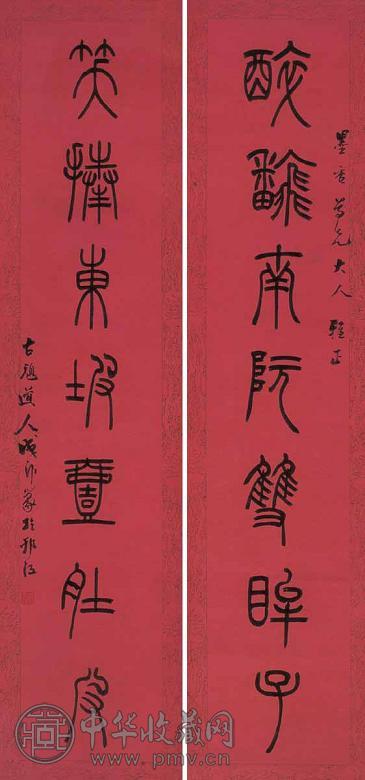 墨 兄大人 正
醉飜南阮雙眸子
笑捧東坡壹肚皮
古 道人 篆於邗江
中华收藏网
www.pmv.cn